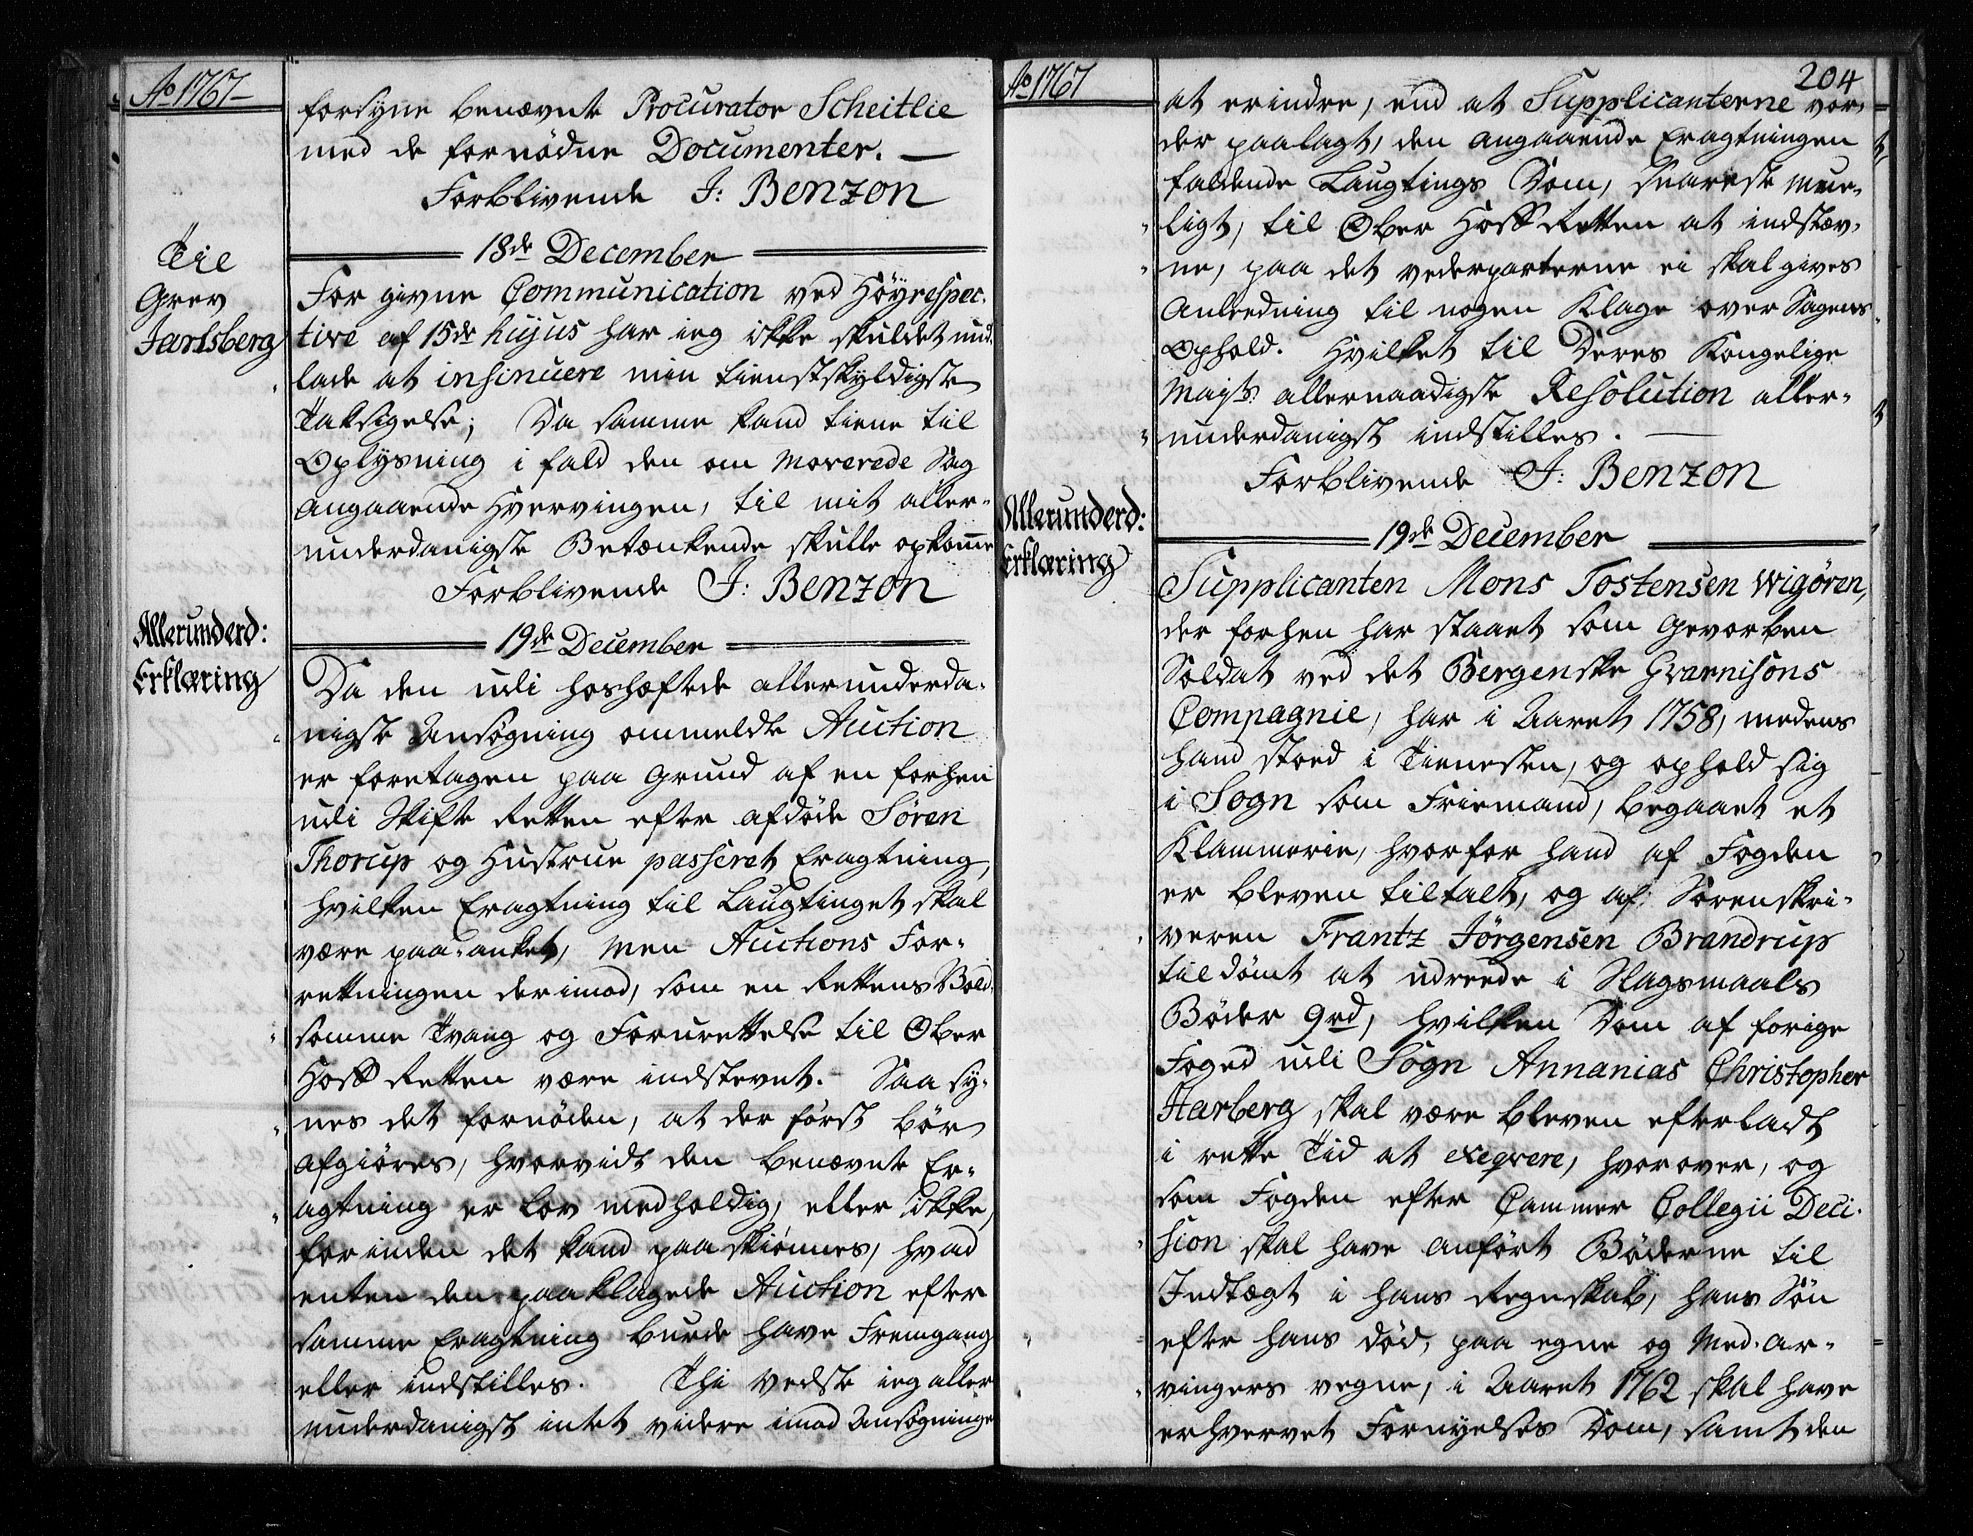 Ao 1767
forsyne benævnte Procurator Scheitlie
med de fornødne Documenter.
Forblivende J: Benzon
18de December
Till
Grev
Jarlsberg
For givne Communication ved Høyrespec-
tive af 15de hujus har ieg ikke skuldet und-
lade at insinuere min tienstskyldigste
Taksigelse; Da samme kand tiene til
Oplysning i fald den om moverede Sag
angaaende Hvervingen, til mit aller-
underdanigste Betænkende skulle opkomme
Forblivende J: Benzon
19de December
Allerunderd:
Erklæring
Da den udi hoshæftede allerunderda-
nigste Ansøgning ommeldte Auction
er foretagen paa grund af en forhen
udi Skifte Retten efter afdøde Søren
Thorup og Hustrue passeret Eragtning,
hvilken Eragtning til Laugtinget skal
være paa-anket, men Auctions For-
rettningen derimod, som en Rettens Vold-
somme Tvang og Forurettelse til Ober
Hoff Retten være indstevnt. Saa sy-
nes det fornøden, at der først bør
afgiøres, hvorvidt den benævnte Er-
agtning er Lov medholdig, eller ikke,
forinden det kand paaskiønnes, hvad
enten den paaklagede Auction efter
samme Eragtning burde have Fremgang
eller indstilles. Thi vedste ieg aller
underdanigst intet videre imod Ansøgningen
Ao 1767
204
at erindre, end at Supplicanterne vor-
der paalagt, den angaaende Eragtningen
faldende Laugtings Dom, snareste mue-
ligt, til Ober Hoff Retten at indstæv-
ne, paa det vederparterne ei skal gives
Anledning til nogen Klage over Sagens
Ophold. Hvilket til Deres Kongelige
Majts: allernaadigste Resolution aller-
underdanigst indstilles.
Forblivende J: Benzon
19de December
Allerunderd:
Erklæring
Supplicanten Mons Tostensen Wigøren,
der forhen har staaet som Gevorben
Soldat ved det Bergenske Gvarnisons
Compagnie, har i Aaret 1758, medens
hand stoed i Tienesten, og opholdt sig
i Sogn som Friemand, begaaet et
Klammerie, hvorfor hand af Fogden
er bleven tiltalt, og af Sorenskri-
veren Frantz Jørgensen Brandrup
tildømt at udreede i Slagsmaals
Bøder 9rd, hvilken Dom af forige
Foged udi Sogn Annanias Christopher
Harberg skal være bleven efterladt
i rette Tid at exeqvere, hvorover, og
som Fogden efter Cammer Collegii Deci-
sion skal have anført Bøderne til
Indtægt i hans Regnskab, hans Søn
efter hans død, paa egne og Med-ar-
vingers vegne, i Aaret 1762 skal have
erhvervet Fornyelses Dom, samt den